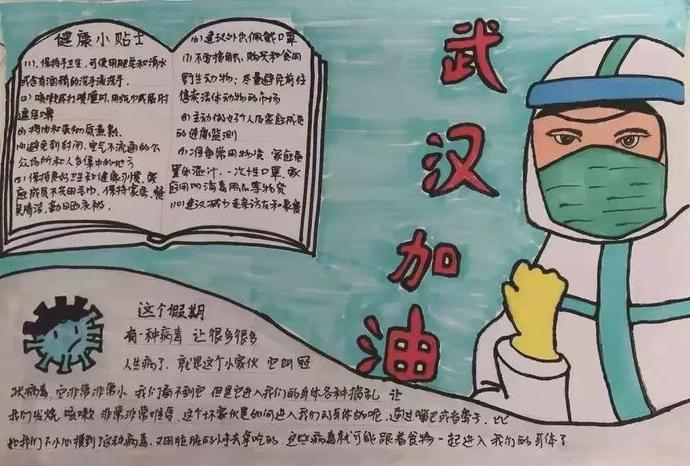 健康小贴士
(1)、保持手卫生,可使用肥皂和清水
或含有酒精的洗手液洗手.
(2) 咳嗽或打喷嚏时,用纸巾或屈肘
遮住口鼻
(3) 将肉和蛋彻底煮熟.
(4) 避免到封闭、空气不流通的个
众场所和人多集中的地方
(5) 保持良好卫生和健康习惯,家
庭成员不共用毛巾,保持家居、餐
具清洁,勤晒衣被.
(6) 建议外出佩戴口罩
(7) 不要接触、购买和食用
野生动物;尽量避免前往
售卖活体动物的市场
(8) 主动做好个人及家庭成员
的健康监测
(9) 准备常用物资 家庭备
置体温计、一次性口罩、家
庭用的消毒用品等物资
(10) 建议减少走亲访友和聚餐
武
汉
加
油
这个假期
有一种病毒 让很多很多
人生病了. 就是这个小家伙 它叫冠
状病毒,它非常非常小 我们看不到它 但是它进入我们的身体各种捣乱 让
我们发烧 咳嗽 非常非常难受,这个坏家伙是如何进入我们的身体的呢,通过嘴巴或者鼻子,比
如我们不小心摸到了这种病毒,又用脏脏的小手去拿吃的,这些病毒就可能跟着食物一起进入我们的身体了